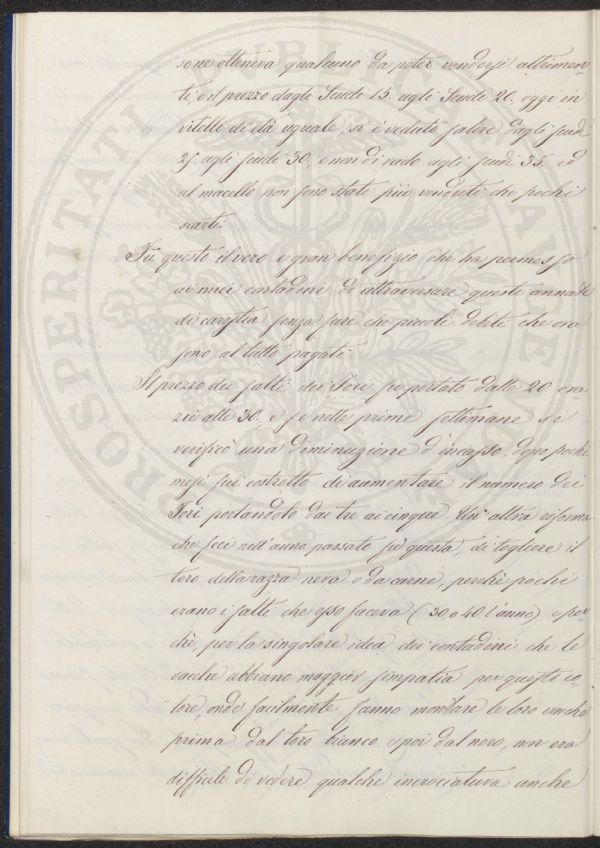 se ne otteneva qualcuno da poter vendersi altrimen-
ti e il prezzo dagli Scudi 15. agli Scudi 20. oggi in
vitelli di età uguale, si è veduto salire dagli scudi
25. agli scudi 30, e non di rado agli scudi 35. ed
al macello non sono stati più venduti che pochi
scarti.
Fu questo il vero e gran benefizio che ha permesso
ai miei contadini di attraversare queste annate
di carestia senza fare che piccoli debiti che ora
sono al tutto pagati.
Il prezzo dei salti dei Tori fu portato dalle 20 cra-
zie alle 30. e se nelle prime settimane si
verificò una diminuzione d'incasso, dopo pochi
mesi fui costretto di aumentare il numero dei
Tori portandolo dai tre ai cinque. Un'altra riforma
che feci nell'anno passato fù questa, di togliere il
toro della razza nera o da carne, perchè pochi
erano i salti che esso faceva (30, o 40 l'anno) e per-
chè, per la singolare idea dei contadini che le
vacche abbiano maggior simpatia per questo co-
lore, onde facilmente fanno montare le loro vacche
prima dal toro bianco e poi dal nero, non era
difficile di vedere qualche incrociatura anche
PROSPERITATI PUBLICAE